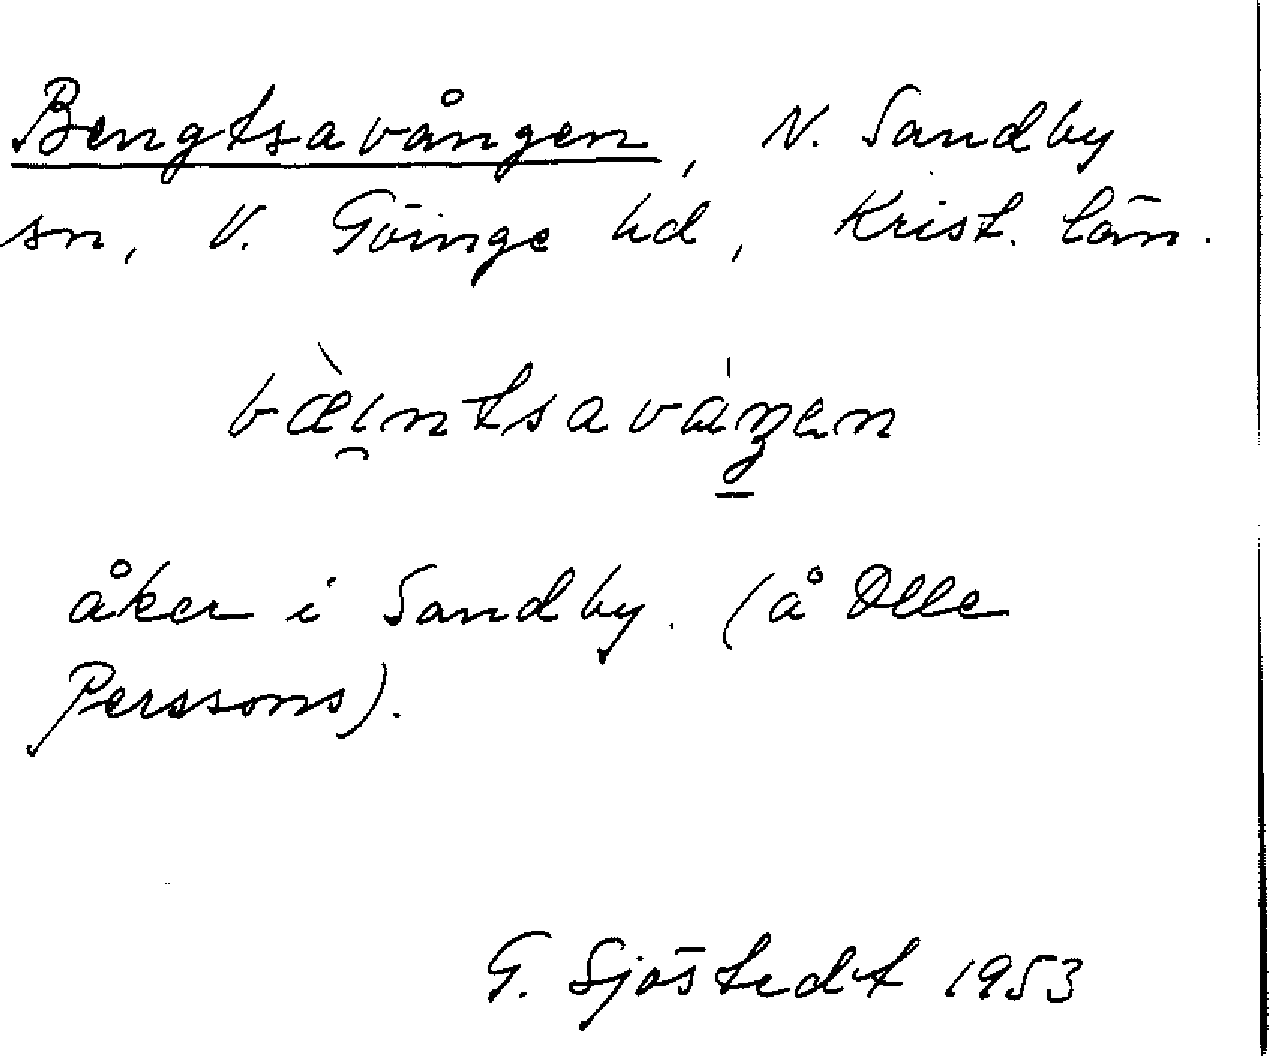 Bengtsavången, N. Sandby
sn, V. Göinge hd, Krist. län.
bæ̀i̯ntsaváŋen
åker i Sandby. (å Olle
Perssons).
G. Sjöstedt 1953